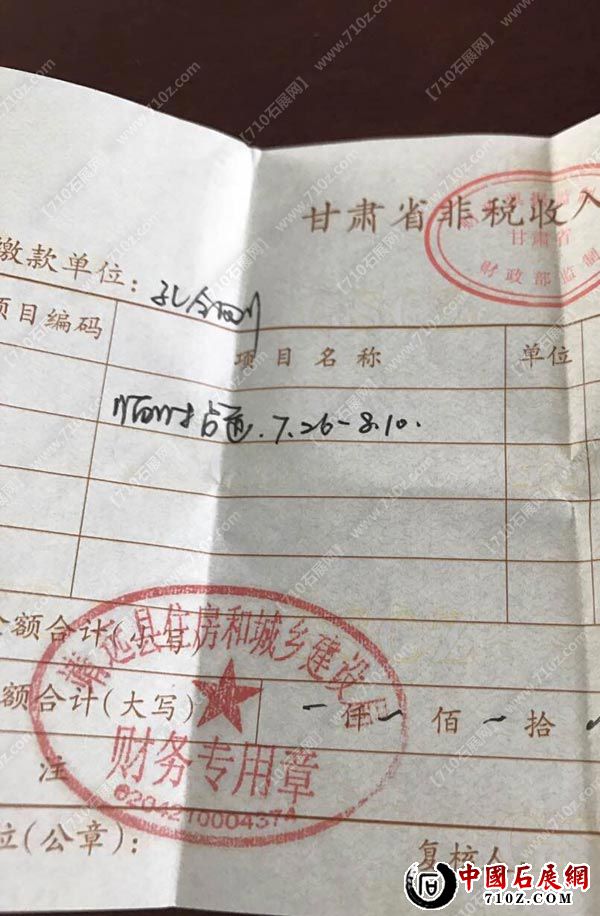 甘肃省非税收入
甘肃省
财政部监制
缴款单位：孔令
项目编码
项目名称
单位
临时占道.7.26-8.10.
金额合计(小写)
靖远县住房和城乡建设局
额合计(大写)
仟 佰 拾
财务专用章
注
6204210004374
位(公章)：
复核人
中國石展網
710Z.COM
【710石展网】www.710z.com